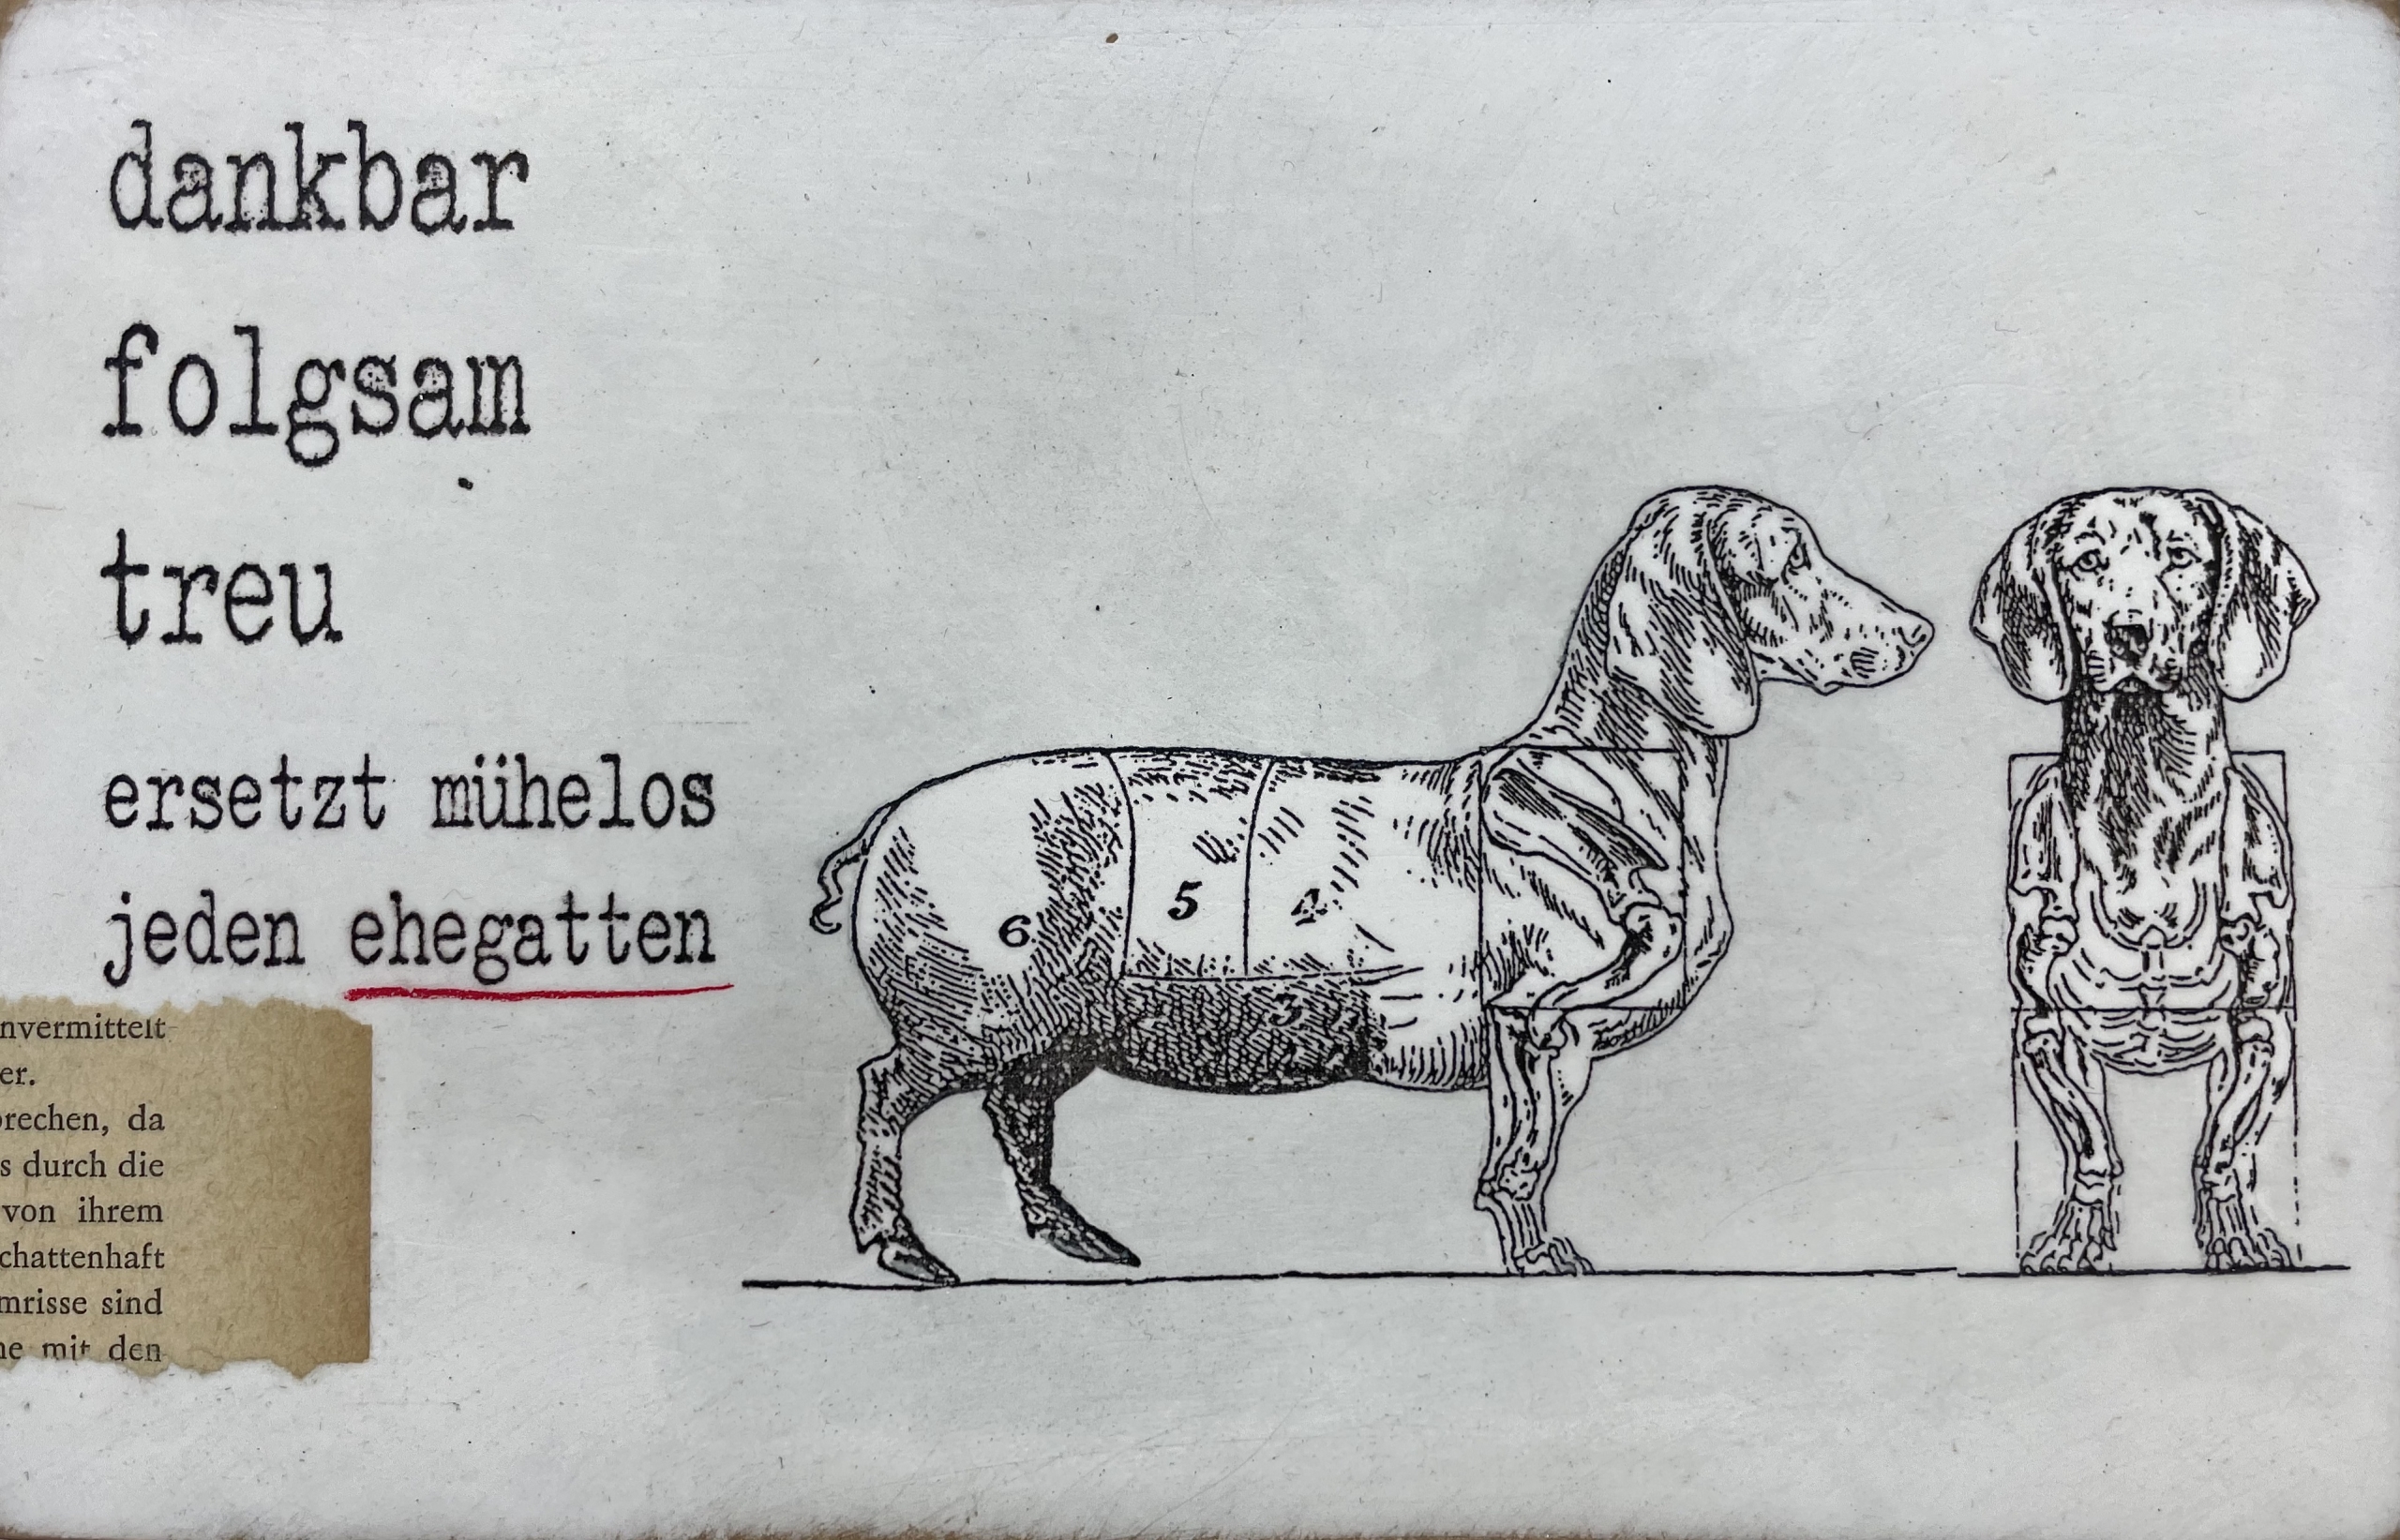 dankbar
folgsam
treu
ersetzt mühelos
jeden ehegatten
nvermittelt
er.
rechen, da
s durch die
von ihrem
chattenhaft
mrisse sind
ne mit den
6
5
4
3